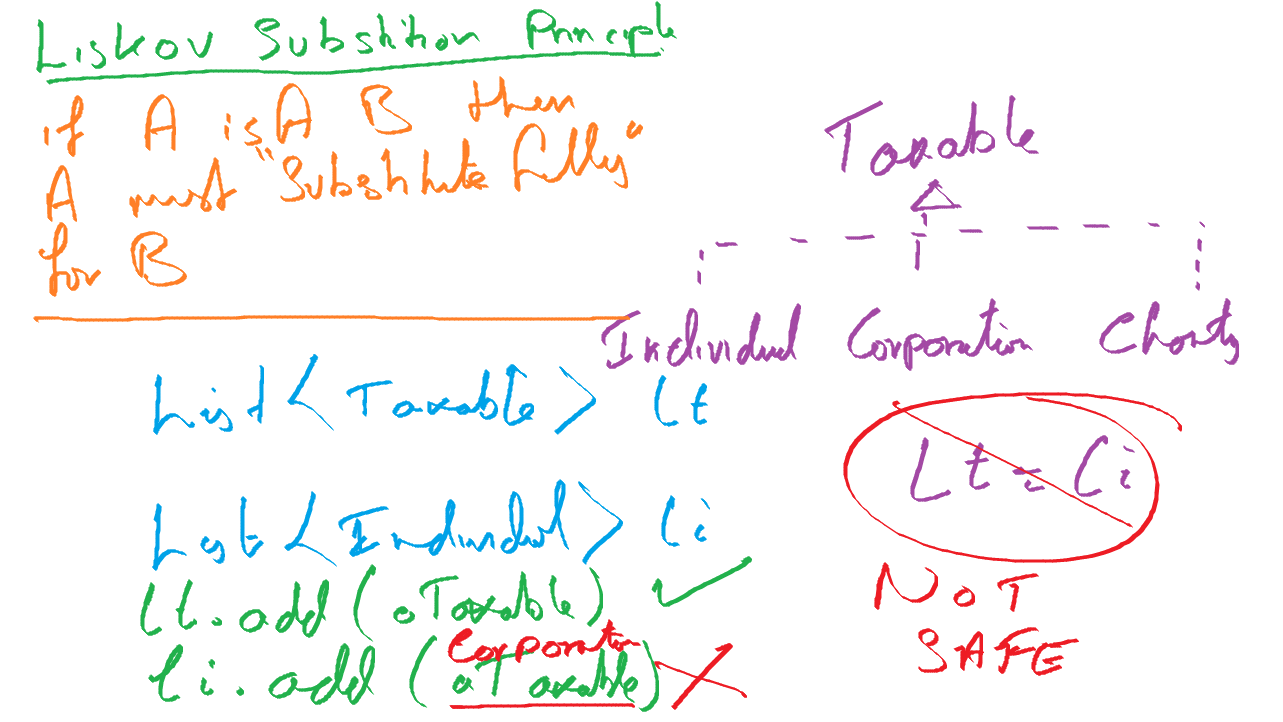 Liskov Substition Principle
if A isA B then
A must "Substitute fully"
for B
Taxable
Individual Corporation Charity
List<Taxable> lt
List<Individual> li
lt = li
NOT
SAFE
lt.add(aTaxable)
Corporation
li.add(aTaxable)